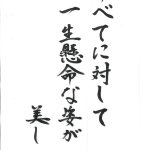 べてに対して
一生懸命な姿が
美し